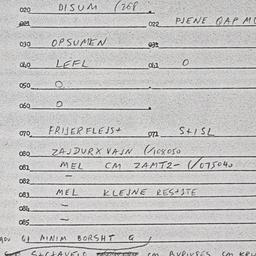 020 DISUM (268
021 022 PJENE QAP MU
030 OPSUMEN 031
040 LEFL 041 0
050 0
060 0
070 FRIJERFLEJS+ 071 S+ISL
080 ZAJDURXVAJN (/108050
081 MEL CM ZAMT2- (/075040
082 —
083 MEL KLEJNE RES+STE
084 —
085
G) MINIM BORSHT G